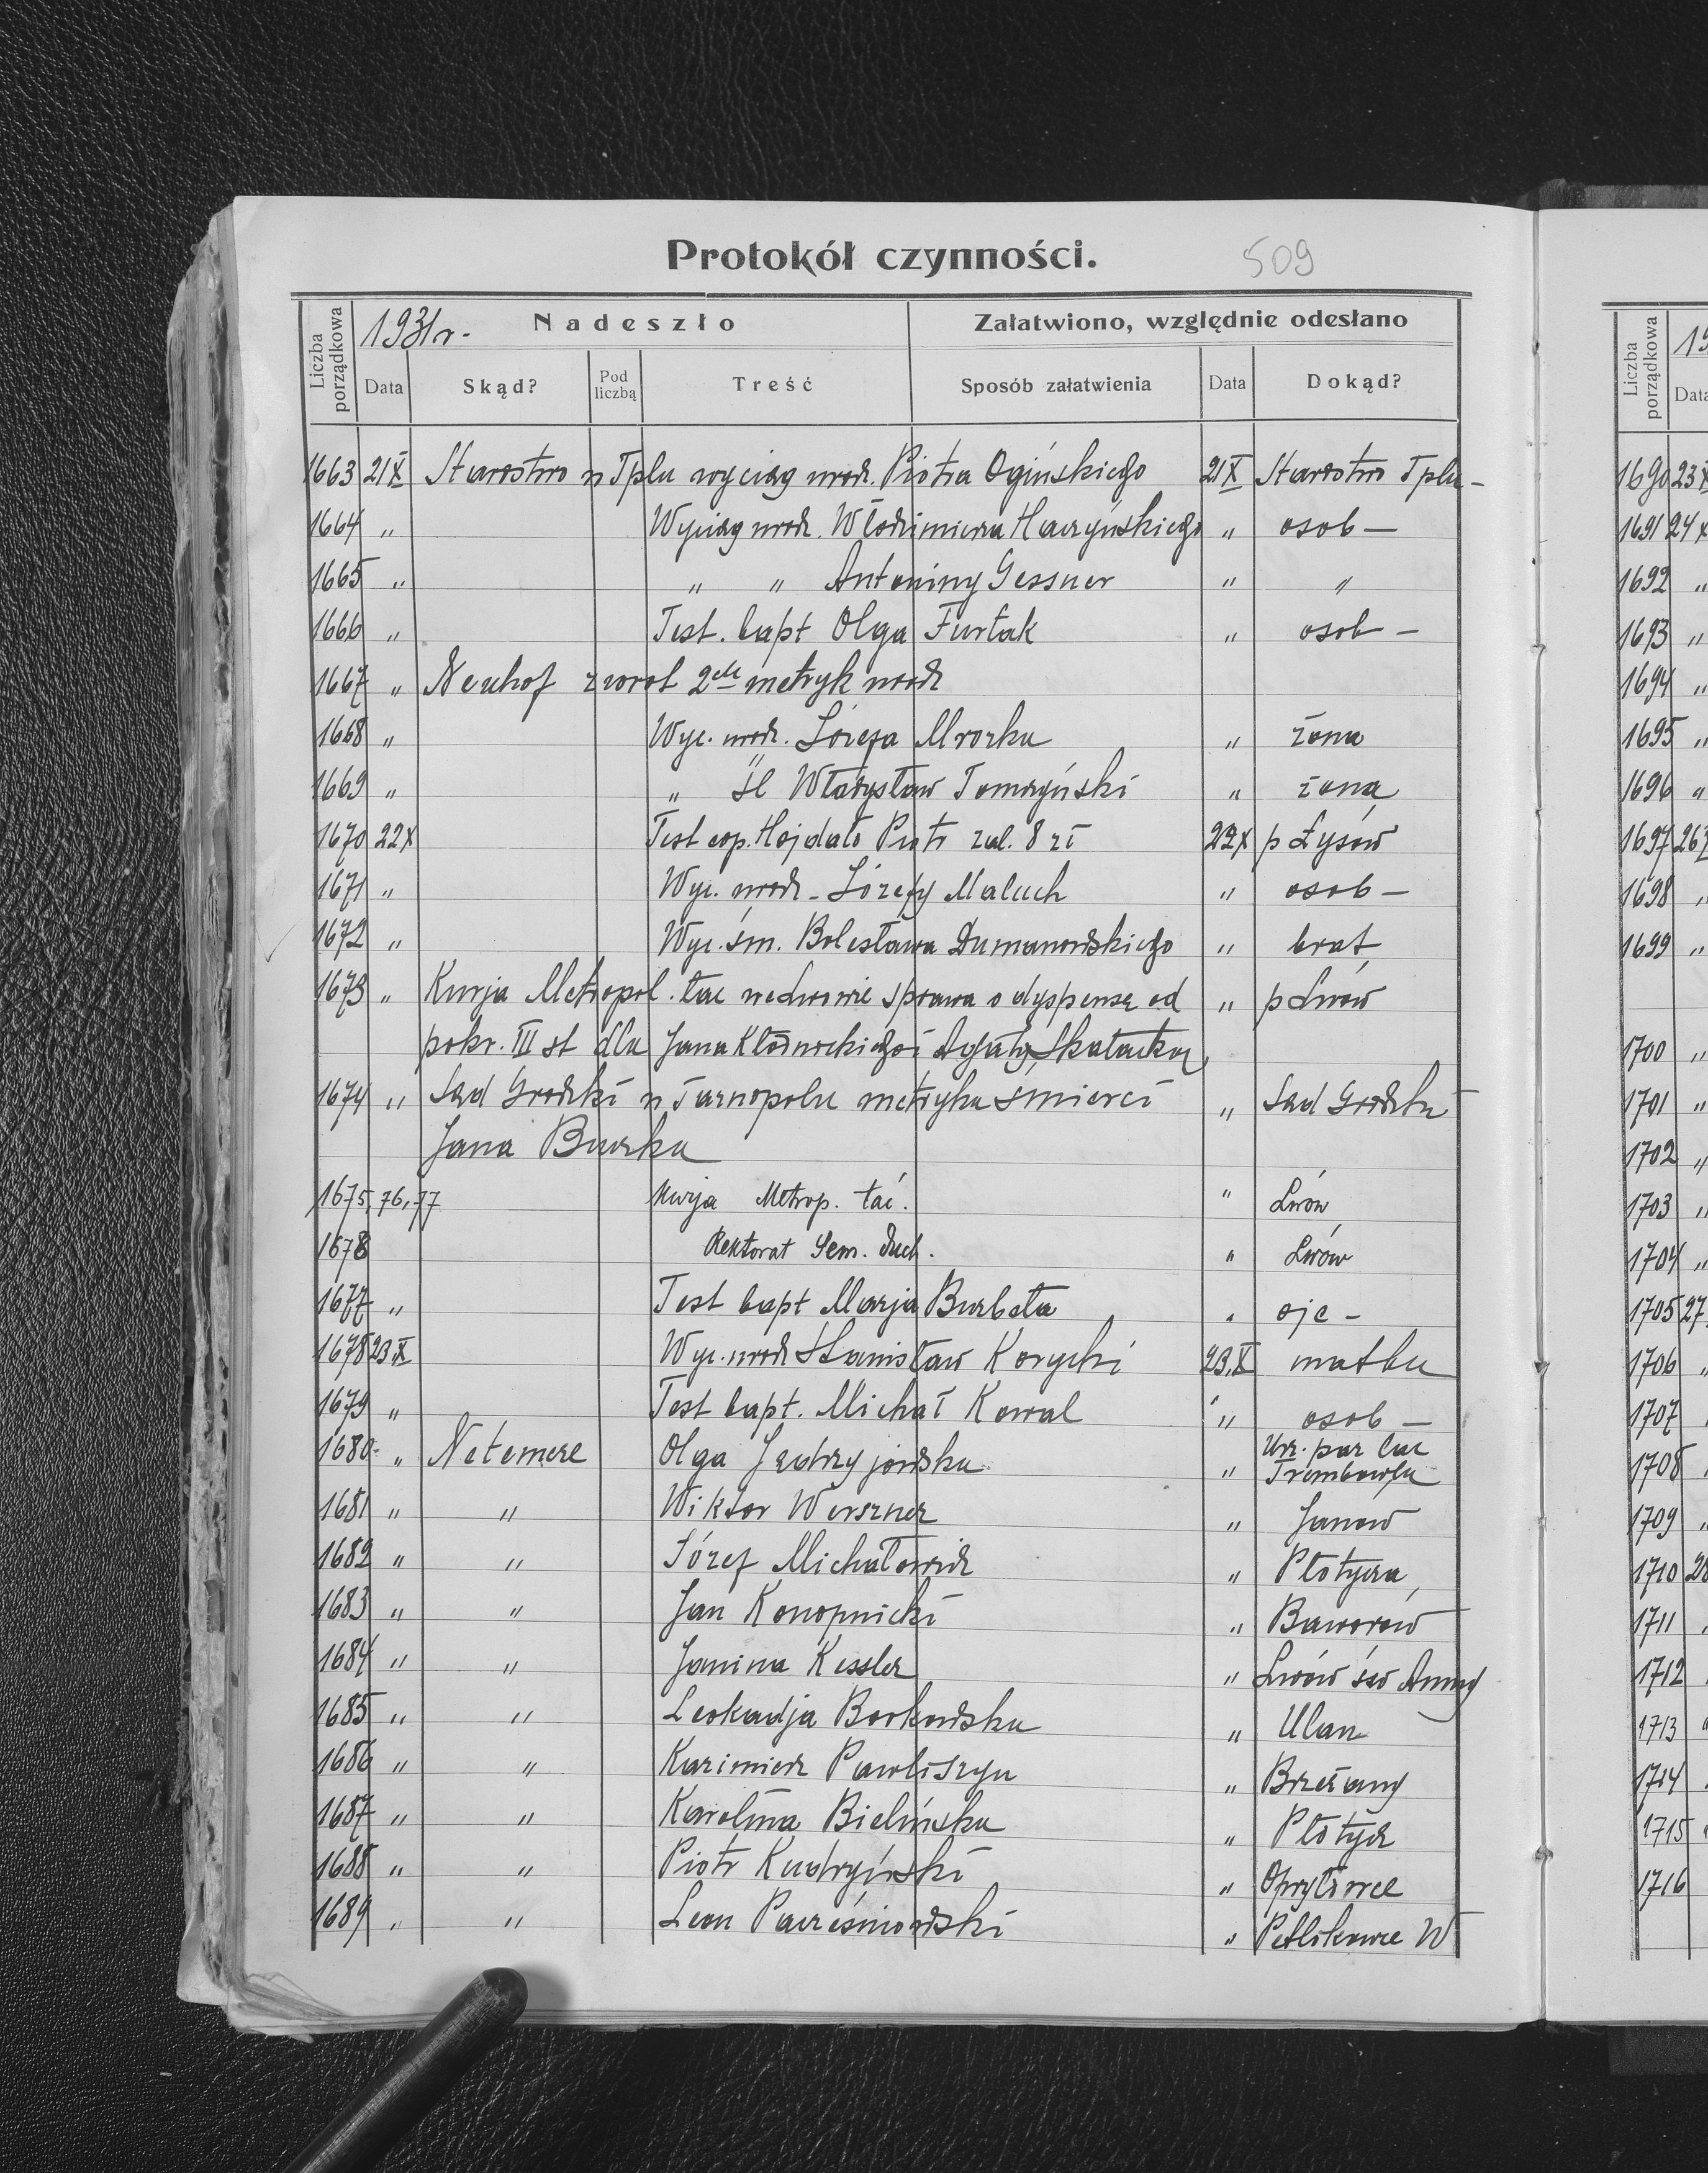 Protokół czynności. 509
Liczba porządkowa
1931 r. - Nadeszło
Załatwiono, względnie odesłano
Data Skąd? Pod liczbą Treść Sposób załatwienia Data Dokąd?
1663 21 X Starostwo w Tplu wyciąg urodz. Piotra Ogińskiego 21 X Starostwo Tplu -
1664 " Wyciąg urodz. Włodzimierza " osob -
1665 " " " Antoniny Gessner " "
1666 " Test. bapt Olga Furtak " osob -
1667 " Neuhof zwrot 2ch metryk urodz
1668 " Wyc. urodz. Józefa Mrozka " żona
1669 " " śl Władysław " żona
1670 22 X Test cop. Hojdało Piotr zał. 8 zł 22 X p Łysów
1671 " Wyc. urodz - Józefy Maluch " osob -
1672 " Wyc. śm. Bolesława Dumanowskiego " brat
1673 " Kurja Metropol. łac we Lwowie sprawa o dyspensę od " p Lwów
pokr. III st dla Jana i Agaty
1674 " Sąd Grodzki w Tarnopolu metryka śmierci " Sąd Grodzki
Jana Burka
1675, 76, 77 Kurja Metrop. łać. " Lwów
1678 Rektorat Sem. duch. " Lwów
1677 " Test bapt Marja Burbeła " ojc -
1678 23 X Wyc. urodz Stanisław Korycki 23. X matka
1679 " Test bapt. Michał Kowal " osob -
1680 - " Netemere Olga Jędrzyjowska " Urz. par łac
Trembowla
1681 " " Wiktor Werszner " Janów
1682 " " Józef Michałowicz " Płotycza
1683 " " Jan Konopnicki " Baworów
1684 " " Janina Kessler " Lwów św Anny
1685 " " Leokadja Borkowska " Ulan
1686 " " Kazimierz Pawliszyn " Brzeżany
1687 " " Karolina Bielińska " Płotycz
1688 " " Piotr Kudryński " Opryłowce
1689 " " Leon " Petlikowce W
Liczba porządkowa
19
Data
1690 23 X
1691 24 X
1692 "
1693 "
1694 "
1695 "
1696 "
1697 26
1698 "
1699 "
1700 "
1701 "
1702 "
1703 "
1704 "
1705 27
1706 "
1707
1708
1709 "
1710 28
1711
1712
1713 "
1714
1715 "
1716